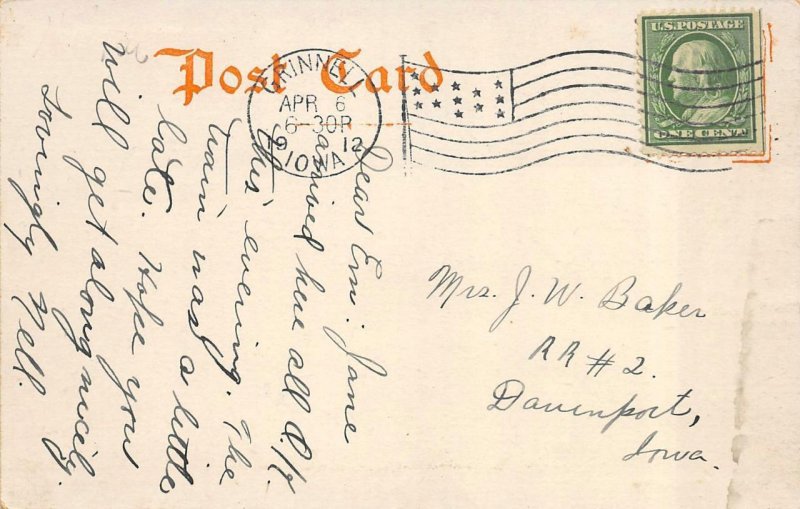 Post Card
GRINNELL
APR 6
6-30P
1912
IOWA
U.S. POSTAGE
ONE CENT
Dear Em: Jane
arrived here all O.K.
this evening. The
train was a little
late. Hope you
will get along nicely.
Lovingly Nell.
Mrs. J. W. Baker
RR # 2.
Davenport,
Iowa.